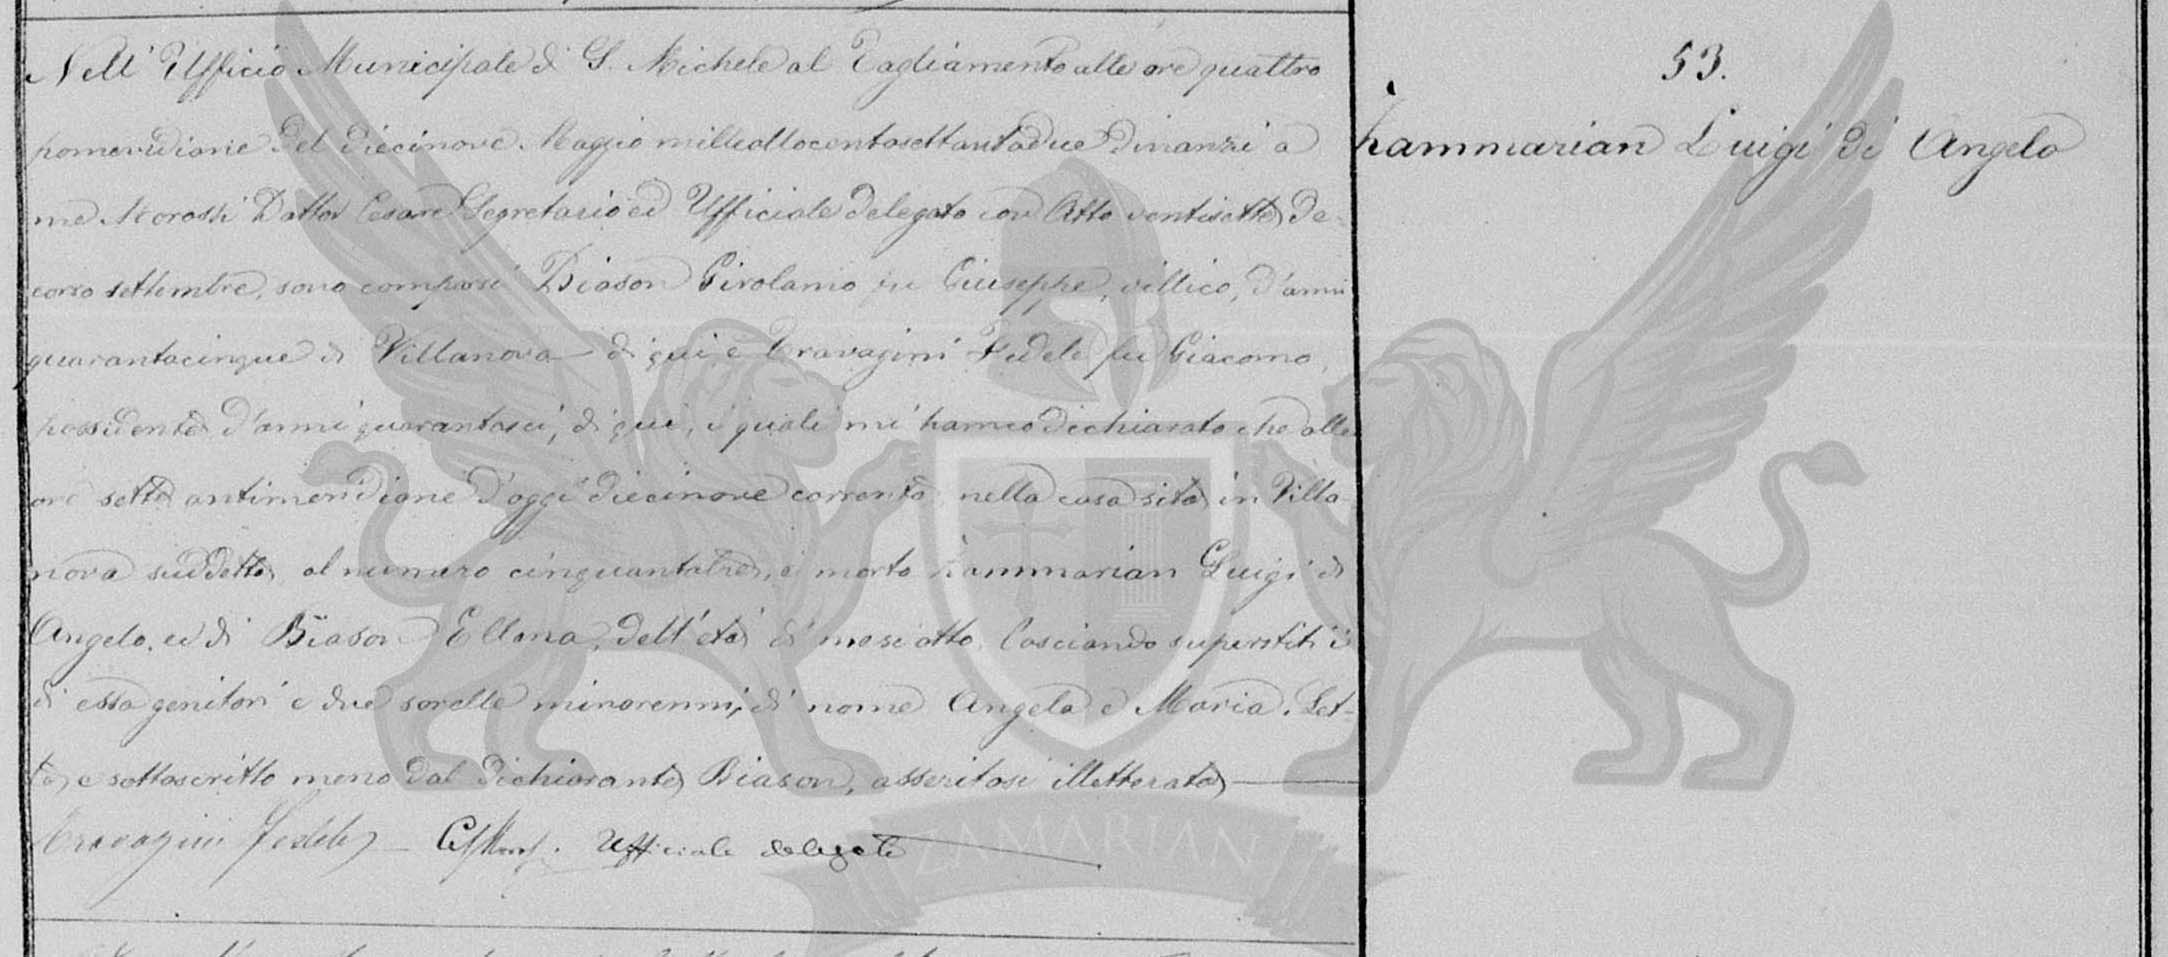 Nell' Ufficio Municipale di S. Michele al Tagliamento alle ore quattro
pomeridiane del diecinove Maggio milleottocentosettantadue dinanzi a
me Morossi Dottor Cesare Segretario ed Ufficiale delegato con Atto ventisette de-
corso settembre, sono comparsi Biason Girolamo fu Giuseppe, villico, d'anni
quarantacinque di Villanova di qui e Travagini Fedele fu Giacomo,
possidente d'anni quarantasei, di qui, i quali mi hanno dichiarato che alle
ore sette antimeridiane d'oggi diecinove corrente, nella casa sita in Villa-
nova suddetta al numero cinquantatre, è morto hammarian Luigi di
Angelo, ed di Biason Ellena, dell'età di mesi otto, lasciando superstiti i
di essa genitori e due sorelle minorenni, di nome Angela e Maria. Let-
to, e sottoscritto meno dal dichiarante Biason, asseritosi illetterato
Travagini Fedele Ufficiale delegato
53.
hammarian Luigi di Angelo
ZAMARIAN